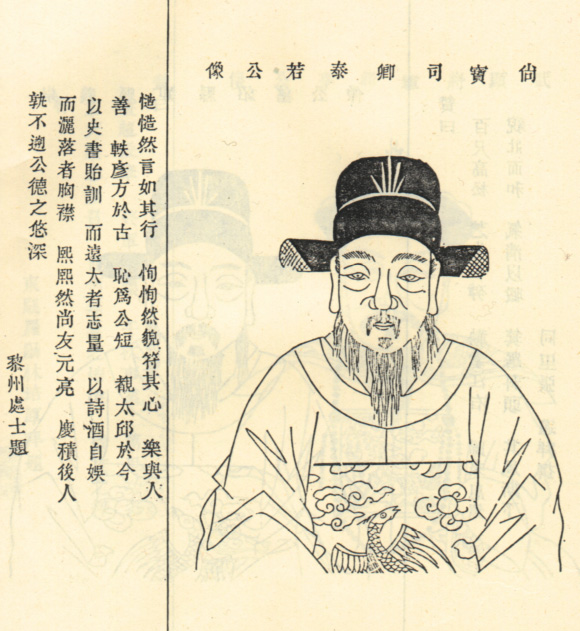 尙寶司卿泰若公像
慥慥然言如其行 恂恂然貌符其心 樂與人
善 軼彥方於古 恥爲公短 觀太邱於今
以史書貽訓 而遠太者志量 以詩酒自娛
而灑落者胸襟 熙熙然尚友元亮 慶積後人
孰不遡公德之悠深
黎州處士題